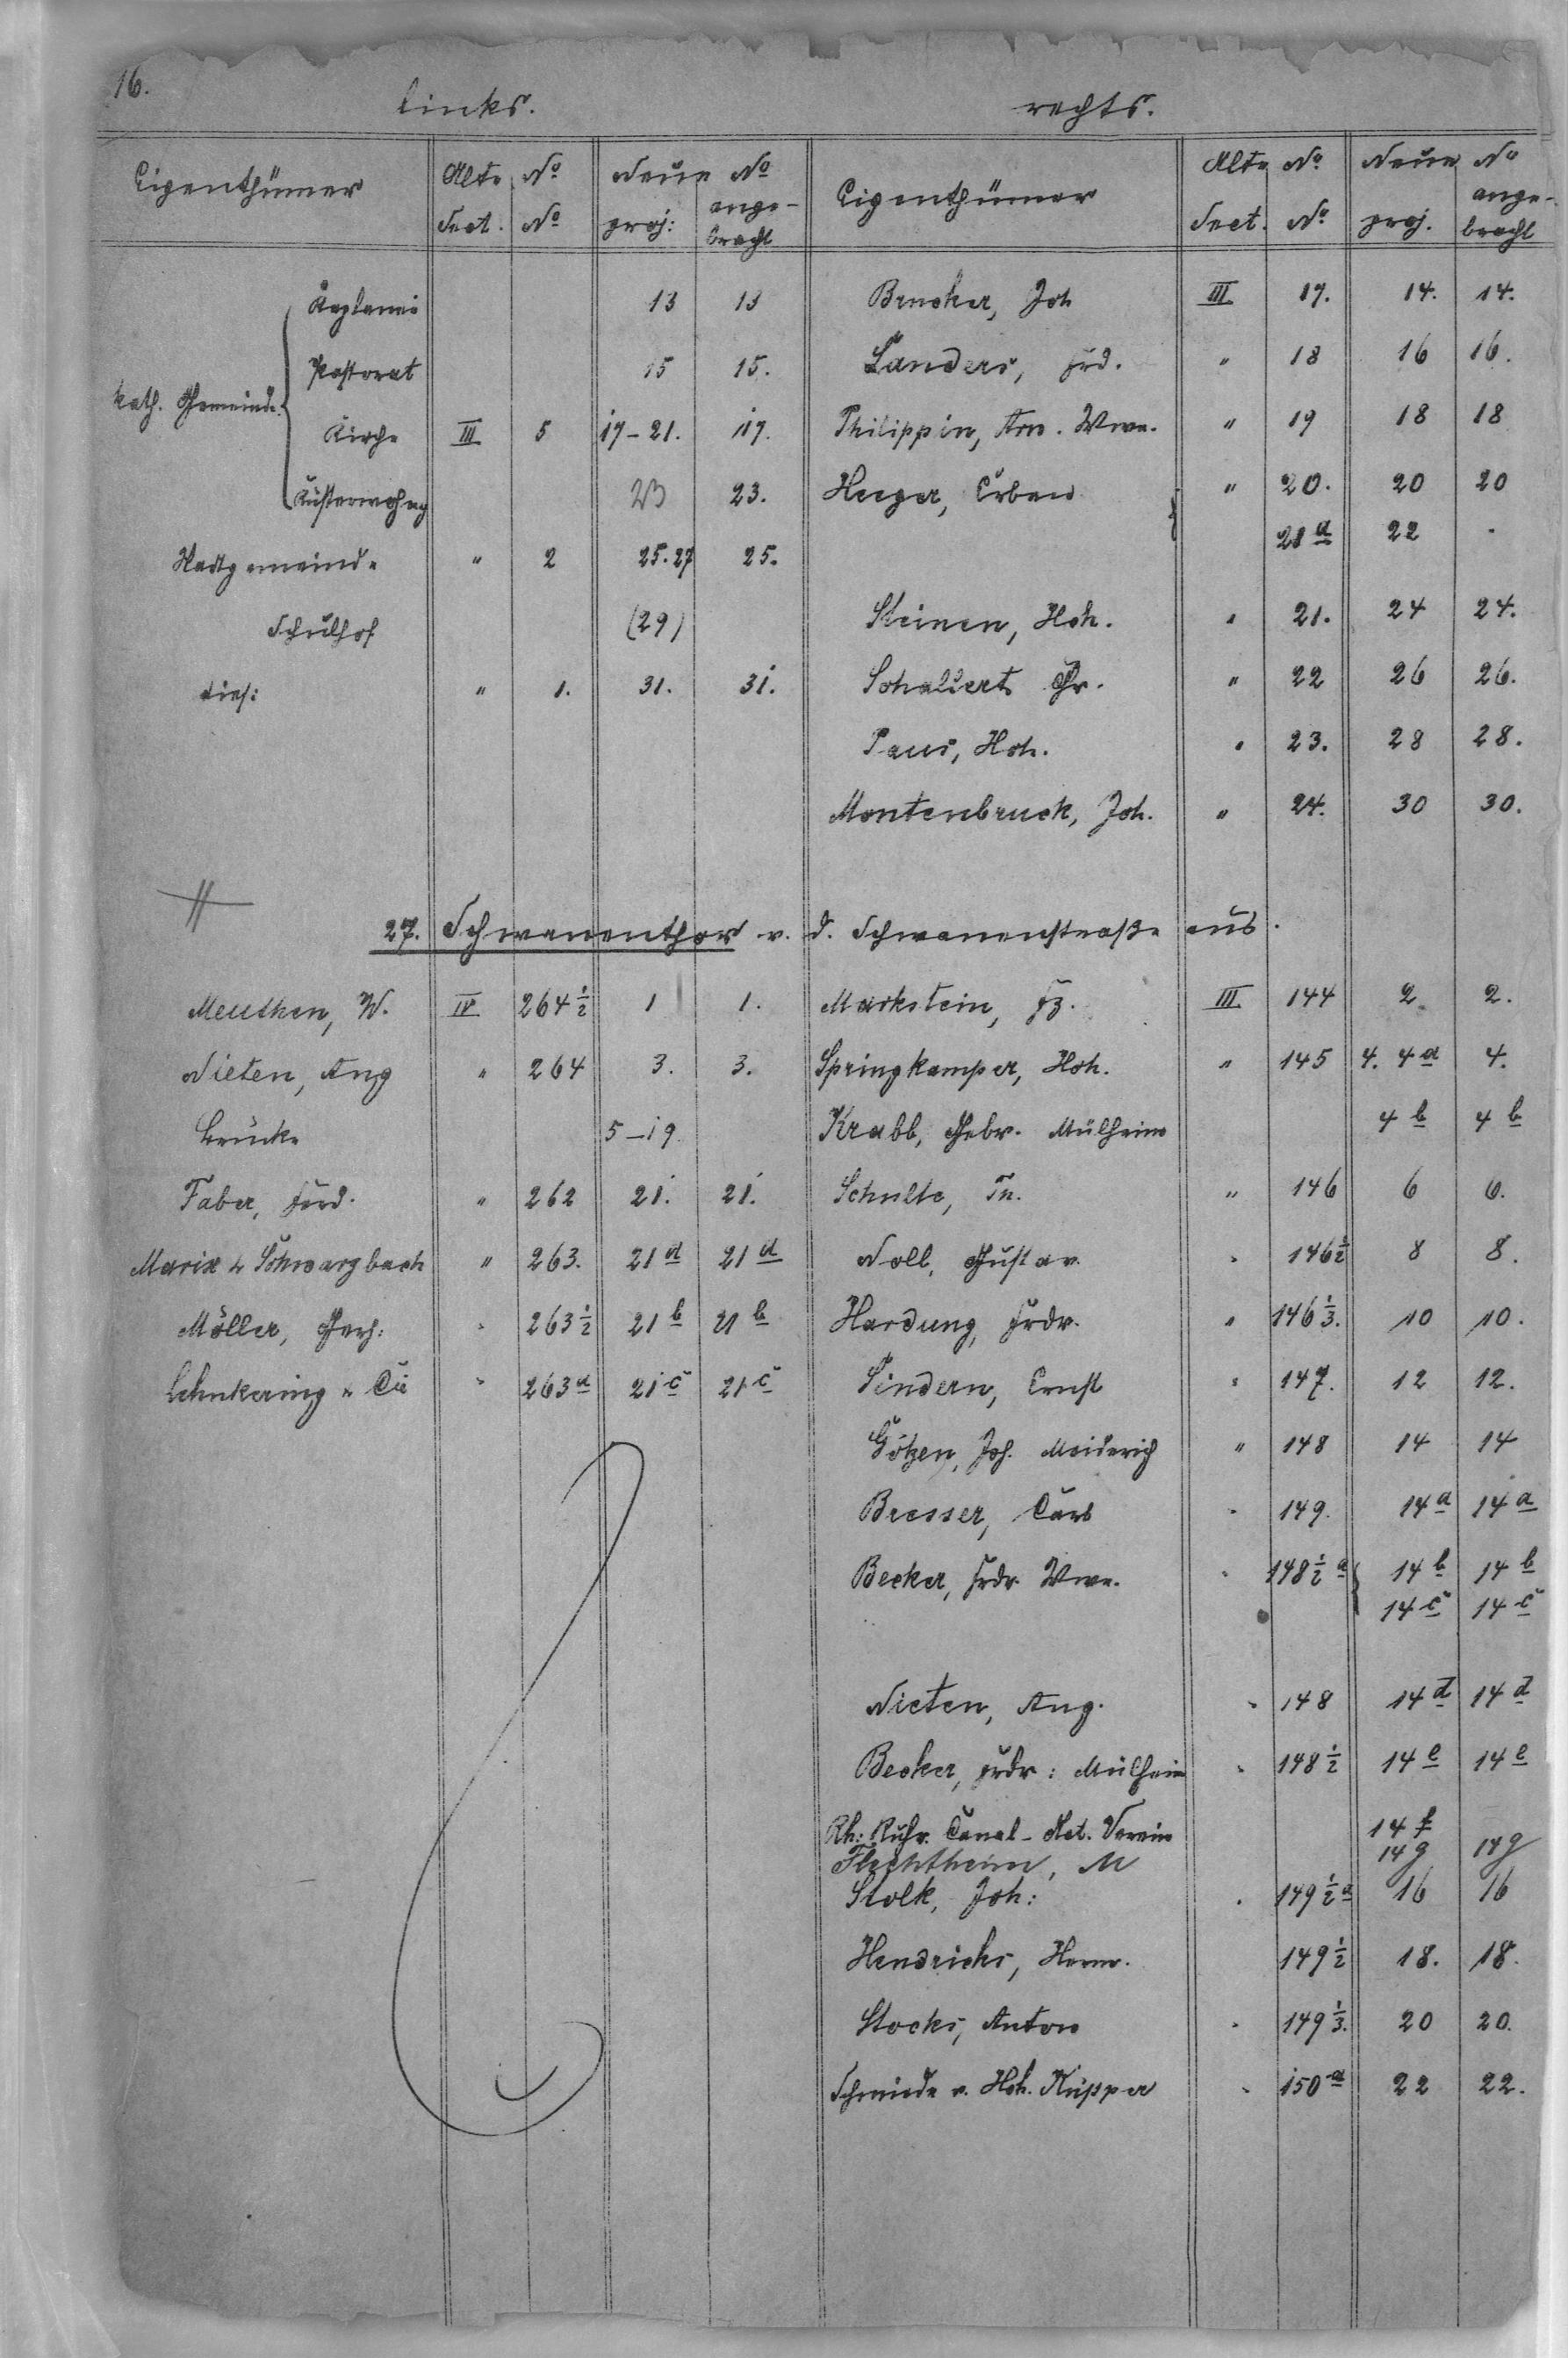 16.
links. rechts.
Eigenthümer Alte No Neue No Eigenthümer Alte No Neue No
Sect. No proj: ange-bracht Sect. No proj. ange-bracht
Kaplanei 13 13 Brucker, Joh III 17. 14. 14.
Pastorat 15 15. Landers, Frd. " 18 16 16.
kath. Gemeinde.
Kirche III 5 17-21. 17. Philippin, Arn. Wwe. " 19 18 18
Küsterwohng 23 23. Heeger, Erben " 20. 20 20
21a 22 .
Stadtgemeinde " 2 25.27 25.
Schulhof (29) Steinen, Hch. " 21. 24 24.
dies: " 1. 31. 31. Schallert Fr. " 22 26 26.
Paus, Hch. " 23. 28 28.
Montenbruck, Joh. " 24. 30 30.
27. Schwanenthor v. d. Schwanenstraße aus.
Meuthen, W. IV 264½ 1 1. Markstein, Fz. III 144 2 2.
Nieten, Aug " 264 3. 3. Springkamper, Hch. " 145 4. 4a 4.
Brücke 5-19 Krabb, Gebr. Mülheim 4b 4b
Faber, Ferd. " 262 21. 21. Schulte, Th. " 146 6 6.
Marix & Schwarzbach " 263. 21a 21a Noll, Gustav " 146½ 8 8.
Möller, Gerh: " 263½ 21b 21b Hardung, Frdr. " 146⅓. 10 10.
Lehnkering & Cie " 263a 21c 21c Sindern, Ernst " 147. 12 12.
Götzen, Joh. Meiderich " 148 14 14
Bresser, Carl " 149. 14a 14a
Becker, Frdr. Wwe. " 148½a 14b 14b
14c 14c
Nieten, Aug. " 148 14d 14d
Becker, Frdr: Mülheim " 148½ 14e 14e
Rh: Ruhr. Canal-Act. Verein 14f
Flechtheim, M 14g 14g
Stolk, Joh: " 149½a 16 16
Hendricks, Herm. 149½ 18. 18.
Stocks, Anton " 149⅓. 20 20.
Schmiede v. Hch. Küpper " 150a 22 22.